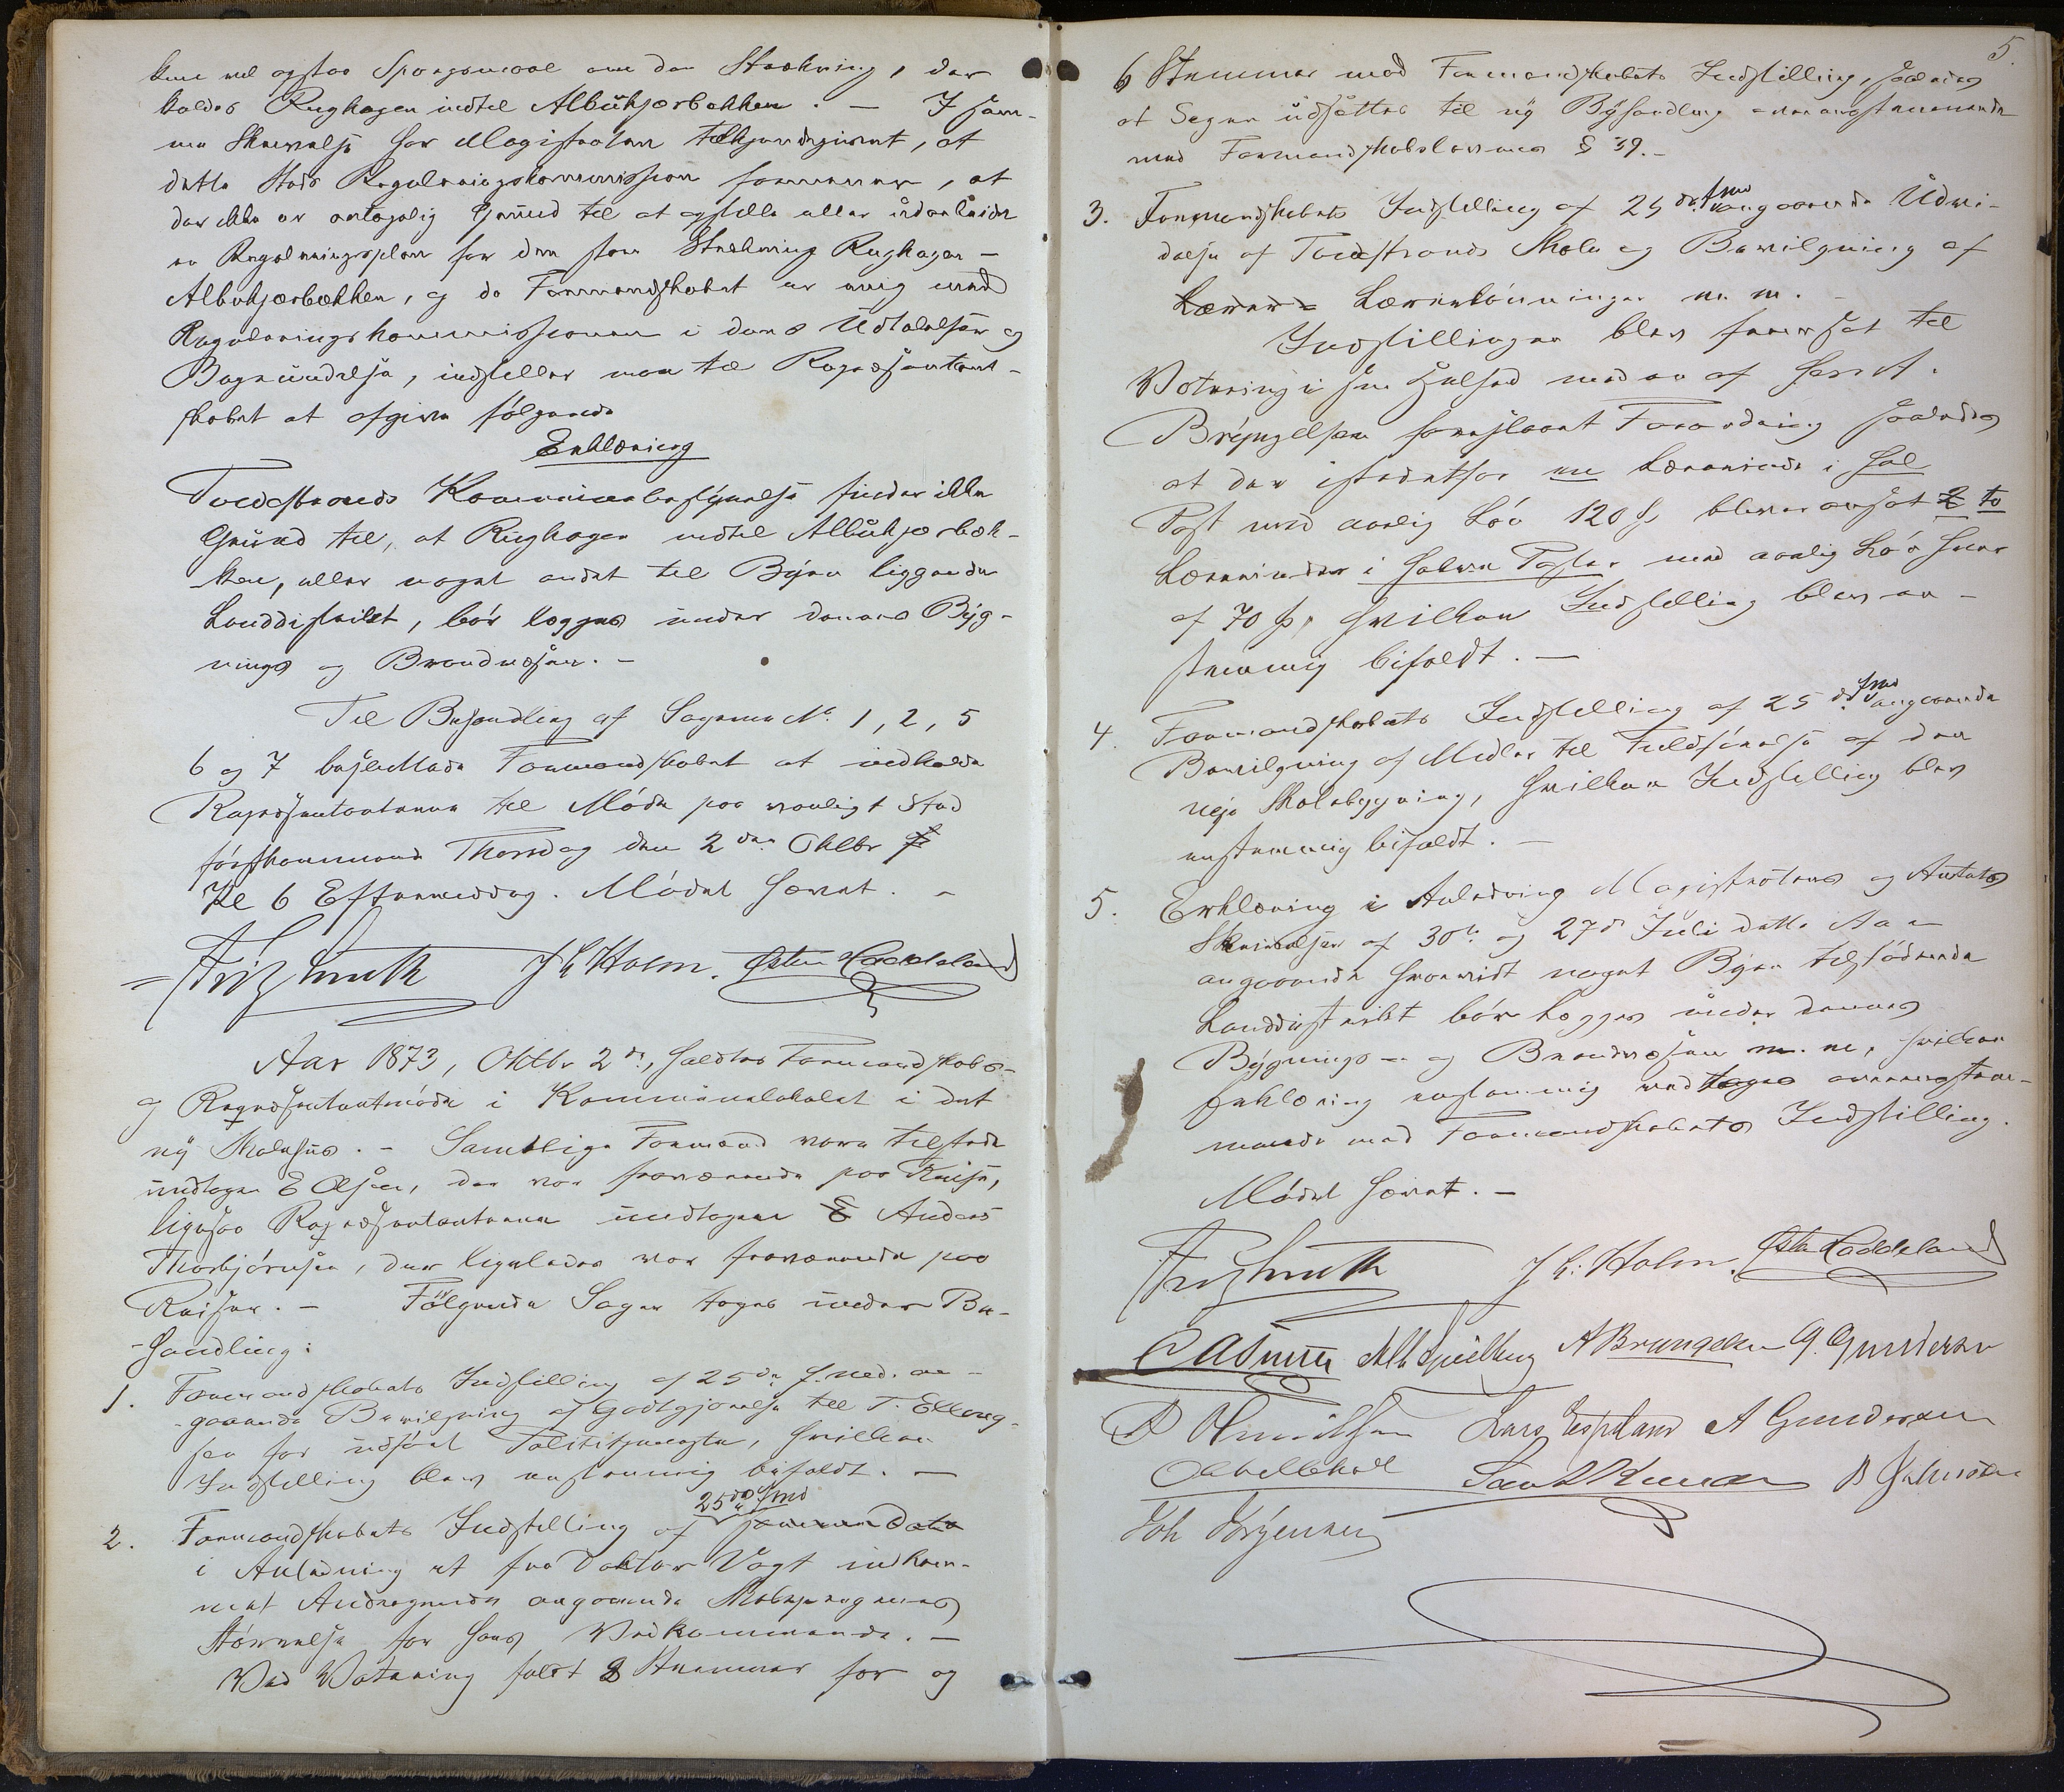 kun vel opstaa Spørgsmaal om den Strækning, der
kaldes Rughagen indtil Albukjærbækken. — I sam-
me Skrivelse har Magistraten tilkjendegivet, at
dette Steds Reguleringskommission formener, at
der ikke er antagelig Grund til at opstille eller udarbeide
en Reguleringsplan for den store Strækning Rughagen -
Albukjærbækken, og da Formandskabet er enig med
Reguleringskommissionen i dens Udtalelser og
Begrundelse, indstiller man til Repræsentant-
skabet at afgive følgende
Erklæring
Tvedestrands Kommunebestyrelse finder ikke
Grund til, at Rughagen indtil Albukjærbæk-
ken, eller noget andet til Byen liggende
Landdistrikt, bør lægges under dennes Byg-
nings og Brandvæsen. -
Til Behandling af Sagerne No. 1, 2, 5
6 og 7 besluttede Formandskabet at indkalde
Repræsentanterne til Møde paa vanligt Sted
førstkommende Thorsdag den 2den Oktbr
Kl 6 Eftermiddag. Mødet hævet. -
Friz Smith J Chr Holm. Østen Loddeland
Aar 1873, Oktbr 2den, holdtes Formandskabs-
og Repræsentantmøde i Kommunelokalet i det
ny Skolehus. - Samtlige Formænd vare tilstede
undtagen E Olsen, der var fraværende paa Reise,
ligesaa Repræsentanterne undtagen E Anders
Thorbjørnsen, der ligeledes var fraværende paa
Reiser. - Følgende Sager toges under Be-
-handling:
1. Formandskabets Indstilling af 25de f. Md. an-
-gaaende Bevilgning af Godtgjørelse til T. Elling-
sen for udført Polititjeneste, hvilken
Indstilling blev enstemmig bifaldt. —
25de f Md
2. Formandskabets Indstilling af samme Dato
i Anledning et fra Doktor Vogt indkom-
met Andragende angaaende Skolepengenes
Størrelse for hans Vedkommende. —
Ved Votering faldt 8 Stemmer for og
5.
6 Stemmer mod Formandskabets Indstilling, saaledes
at Sagen udsættes til ny Behandling overensstemmende
med Formandskabslovens § 39. -
3. Formandskabets Indstilling af 25de f Md angaaende Udvi-
delse af Tvedestrands Skole og Bevilgning af
Lærer= Lærerlønninger m. m. -
Indstillingen blev fremsat til
Votering i sin Helhed med en af Herr A.
Bryngelsen foreslaaet Forandring saaledes
at der istedetfor en Lærerinde i hel
Post med aarlig Løn 120 Sp bliver ansat 2 to
Lærerinder i halve Poster med aarlig Løn hver
af 70 Sp, hvilken Indstilling blev en-
stemmig bifaldt. —
4. Formandskabets Indstilling af 25de f Md angaaende
Bevilgning af Midler til Fuldførelse af den
nye Skolebygning, hvilken Indstilling blev
enstemmig bifaldt. —
5. Erklæring i Anledning Magistratens og Amtets
Skrivelser af 30te og 27de Juli dette Aar
angaaende hvorvidt noget Byen tilstødende
Landdistrikt bør lægges under dennes
Bygnings- og Brandvæsen m. m, hvilken
Erklæring enstemmig vedtages overensstem-
mende med Formandskabets Indstilling.
Mødet hævet. -
Friz Smith J Chr: Holm. Østen Loddeland
A Bryngelsen G. Gundersen
Lars Espeland A Gundersen